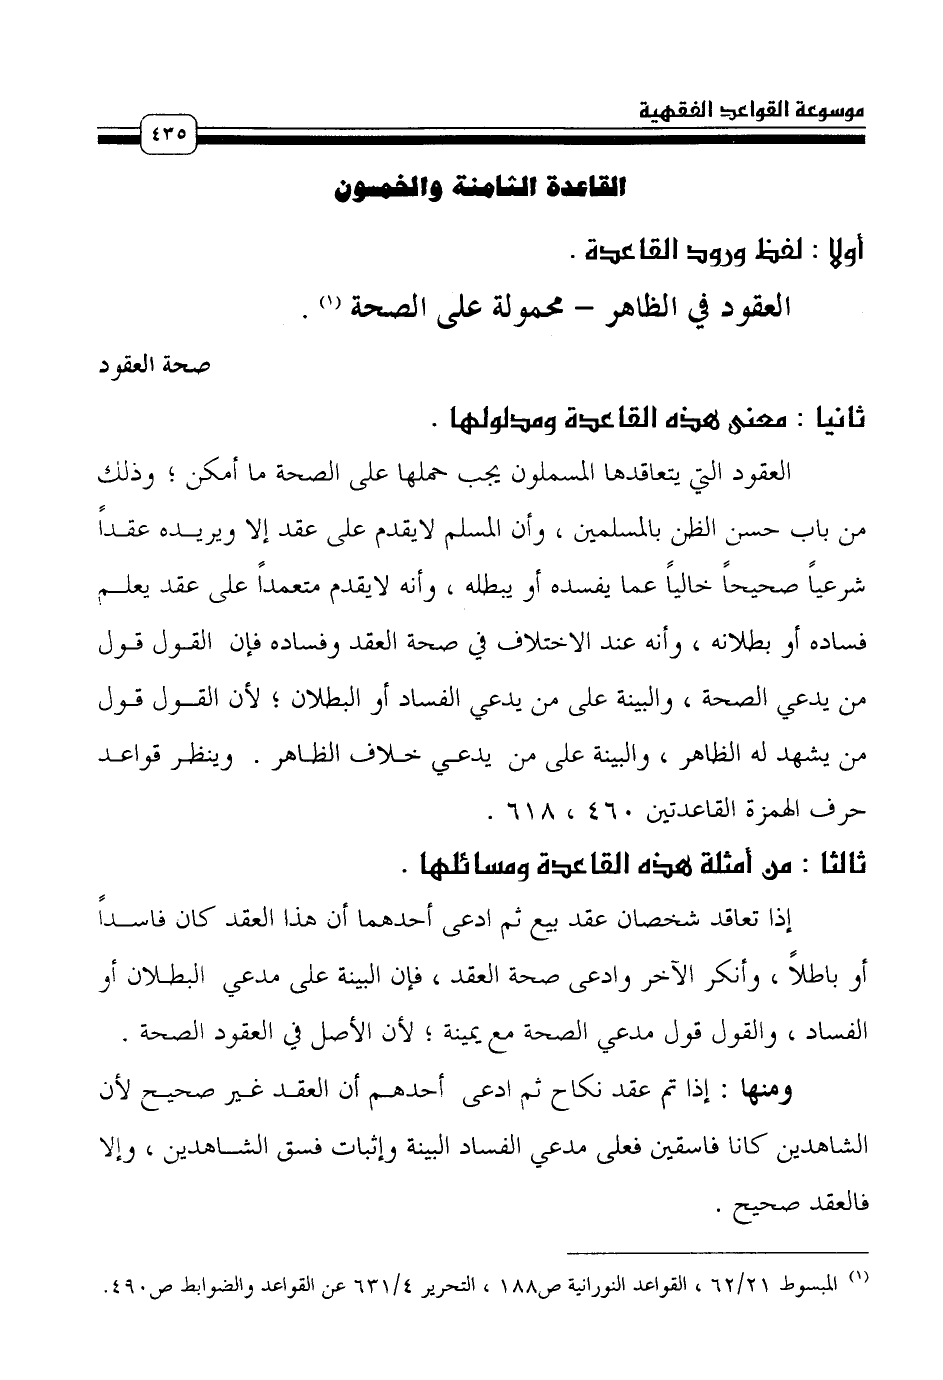 موسوعة القواعد الفقهية
٤٣٥
القاعدة الثامنة والخمسون
أولا : لفظ ورود القاعدة .
العقود في الظاهر – محمولة على الصحة (١) .
صحة العقود
ثانيا : معنى هذه القاعدة ومدلولها .
العقود التي يتعاقدها المسملون يجب حملها على الصحة ما أمكن ؛ وذلك
من باب حسن الظن بالمسلمين ، وأن المسلم لايقدم على عقد إلا ويريده عقداً
شرعياً صحيحاً خالياً عما يفسده أو يبطله ، وأنه لايقدم متعمداً على عقد يعلم
فساده أو بطلانه ، وأنه عند الاختلاف في صحة العقد وفساده فإن القول قول
من يدعي الصحة ، والبينة على من يدعي الفساد أو البطلان ؛ لأن القول قول
من يشهد له الظاهر ، والبينة على من يدعي خلاف الظاهر . وينظر قواعد
حرف الهمزة القاعدتين ٤٦٠ ، ٦١٨ .
ثالثا : من أمثلة هذه القاعدة ومسائلها .
إذا تعاقد شخصان عقد بيع ثم ادعى أحدهما أن هذا العقد كان فاسداً
أو باطلاً ، وأنكر الآخر وادعى صحة العقد ، فإن البينة على مدعي البطلان أو
الفساد ، والقول قول مدعي الصحة مع يمينة ؛ لأن الأصل في العقود الصحة .
ومنها : إذا تم عقد نكاح ثم ادعى أحدهم أن العقد غير صحيح لأن
الشاهدين كانا فاسقين فعلى مدعي الفساد البينة وإثبات فسق الشاهدين ، وإلا
فالعقد صحيح .
(١) المبسوط ٦٢/٢١ ، القواعد النورانية ص١٨٨ ، التحرير ٦٣١/٤ عن القواعد والضوابط ص٤٩٠.